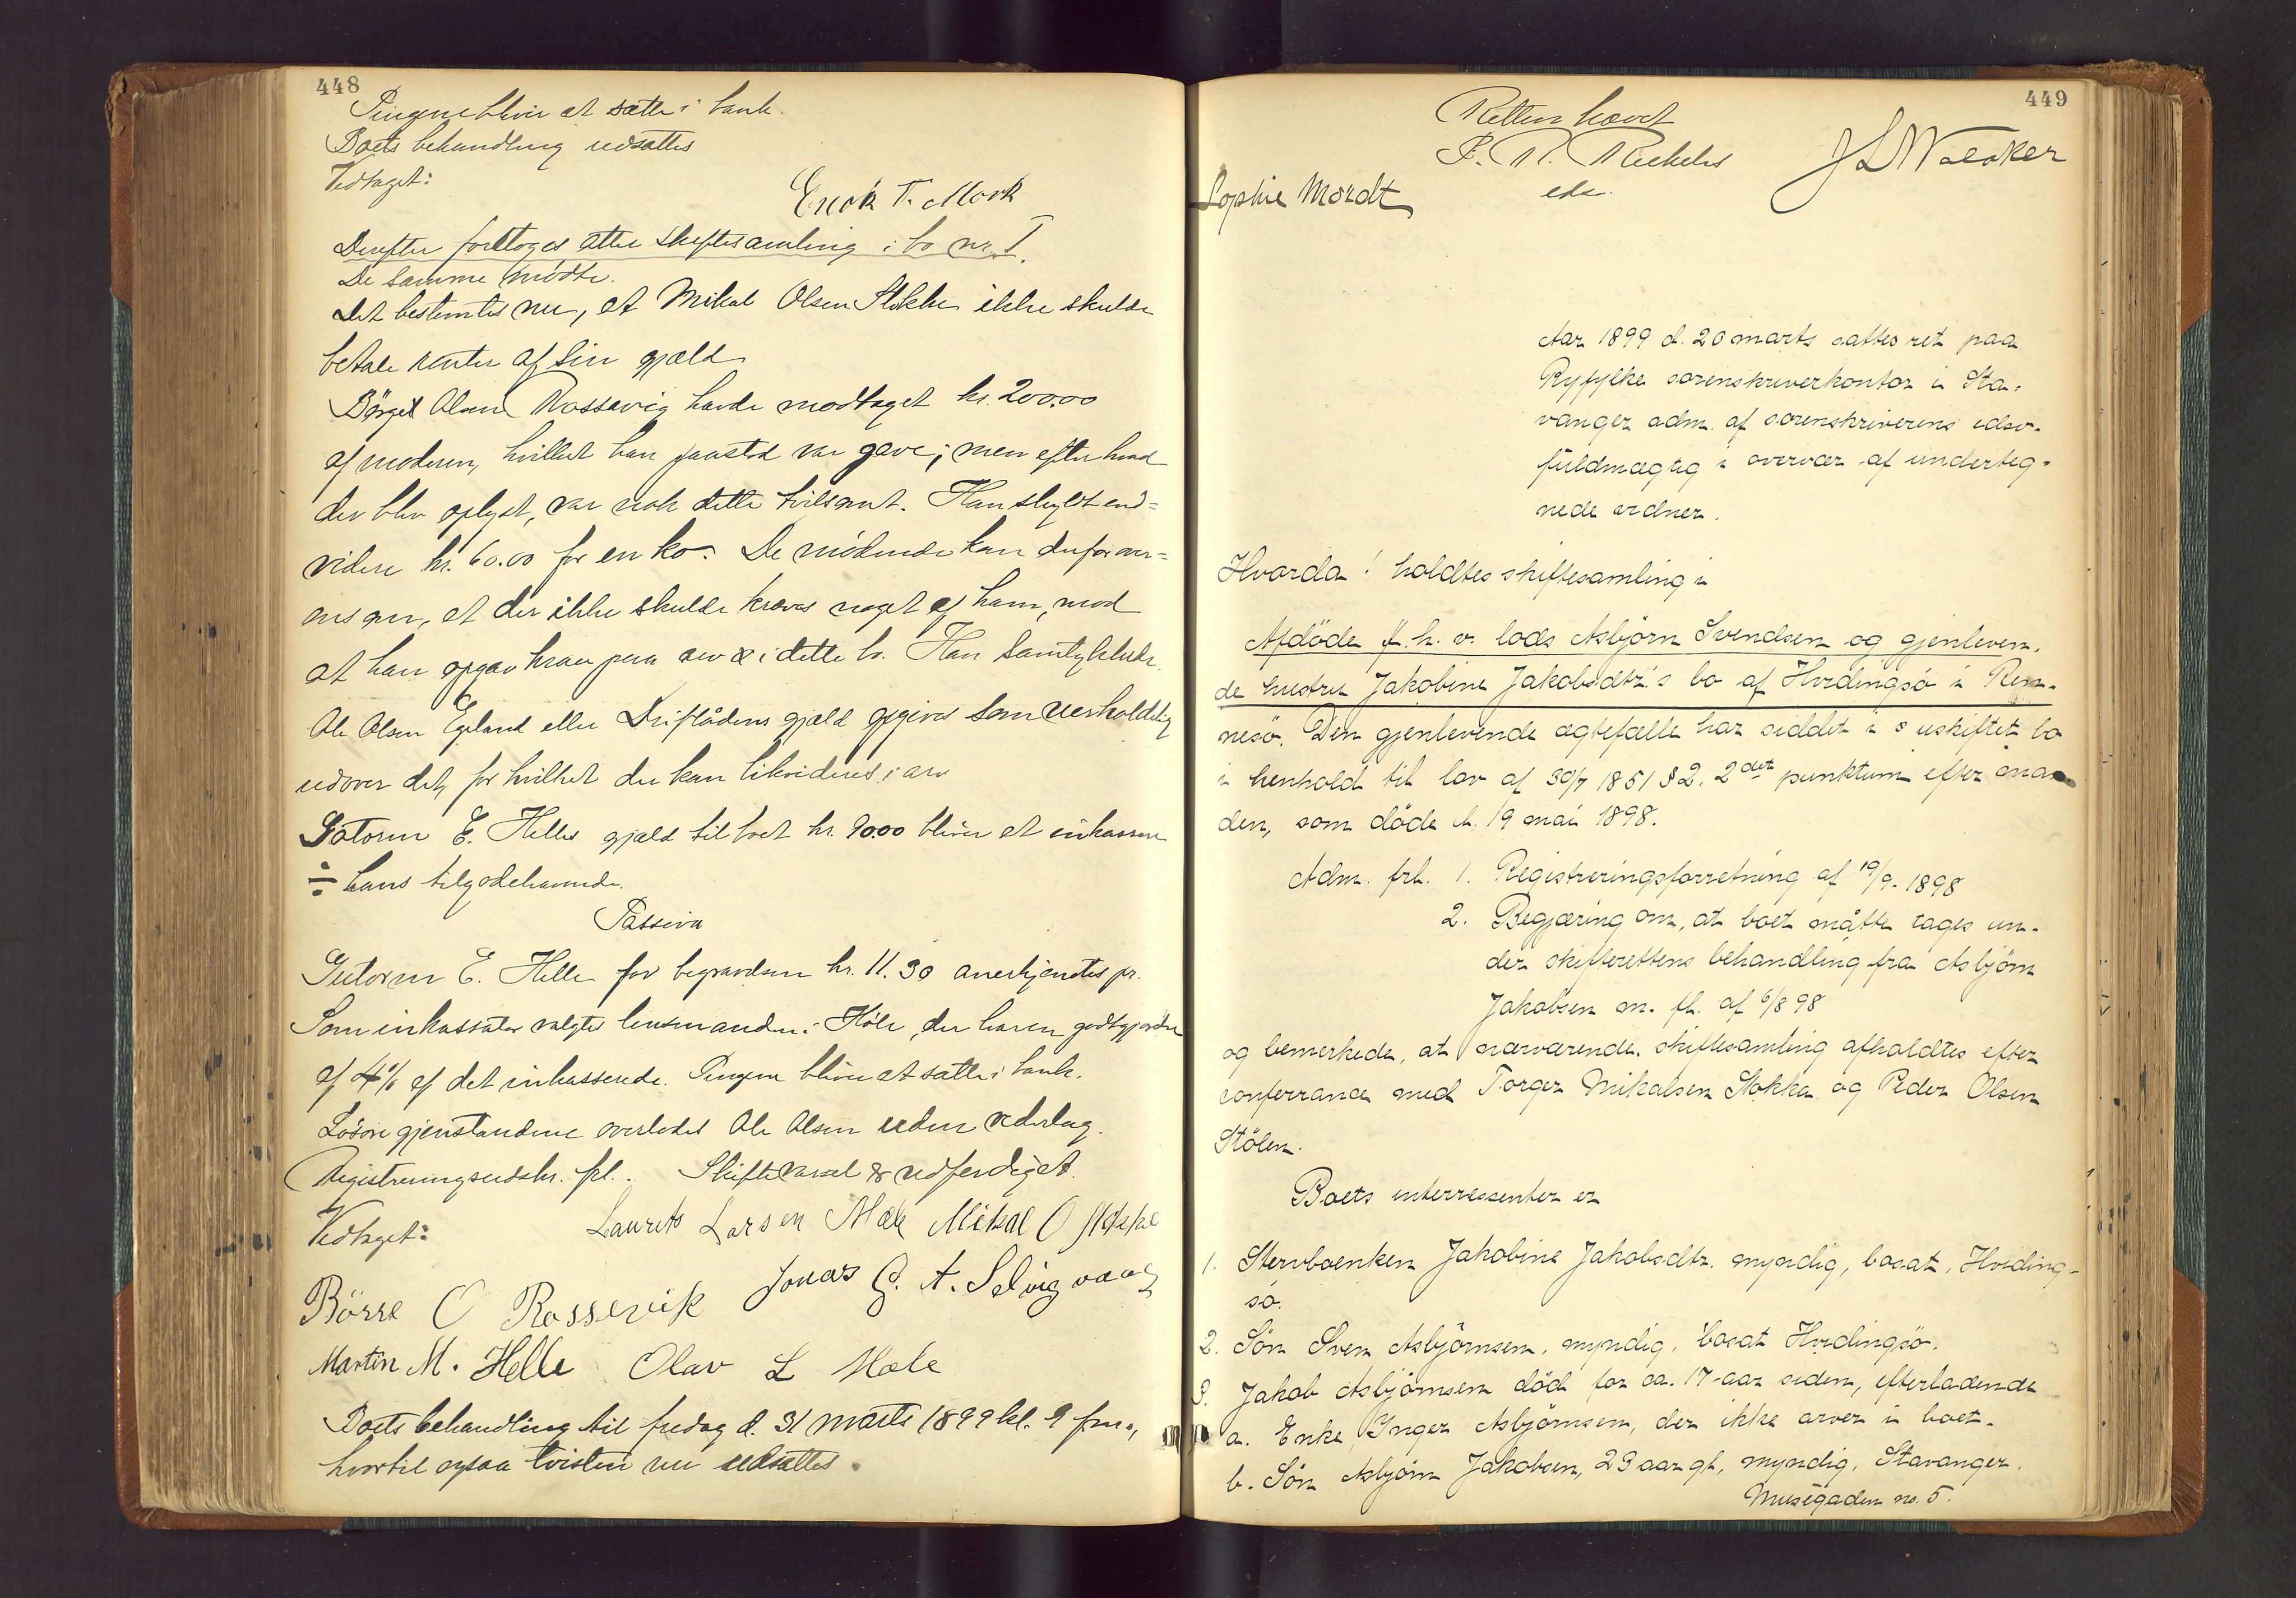 448
Pengene bliver at sætte i bank.
Boets behandling udsattes
Vedtaget:
Erik T. Mork
Derefter foretoges atter skiftesamling i bo nr. I.
De samme mödte.
Det bestemtes nu, at Mikal Olsen Stokke ikke skulde
betale renter af sin gjæld
Börge Olsen Rossavig havde modtaget kr. 200.00
af moderen, hvilket han paastod var gave; men efter hvad
der blev oplyst, var nok dette tvilsomt. Han skyldt end-
videre kr. 60.00 for en ko. De mödende kom derfor over-
ens om, at der ikke skulde kræves noget af ham, mod
at han opgav krav paa arv i dette bo. Han samtykkede.
Ole Olsen Egeland eller gjæld opgives som uerholdelig
udover det, for hvilket der kan likvideres i arv
Gutorm E. Helles gjæld til boet kr. 90.00 bliver at inkassere
÷ hans tilgodehavende.
Passiva
Gutorm E. Helle for begravelsen kr. 11.30 anerkjendtes pr.
Som inkassator valgtes lensmanden i Höle, der haren godtgjörelse
af 4% af det inkasserede. Pengene bliver at sætte i bank.
Lösöregjenstandene overlodes Ole Olsen uden vederlag.
Registreringsudskr. frl. Skiftevarsel er udferdiget.
Vedtaget: Laurits Larsen Mæle Mikal O Stokke
Börre O Rossevik Jonas G. A. Selvigvaag
Martin M. Helle Olav L Hole
Boets behandling til fredag d. 31 marts 1899 kl. 9 fm.,
hvortil ogsaa tvisten nu udsattes.
449
Retten hævet
eds.
Sophie Mordt
Aar 1899 d. 20 marts sattes ret paa
Ryfylke sorenskriverkontor i Sta-
vanger adm. af sorenskriverens edsv.
fuldmægtig i overvær af underteg-
nede vidner.
Hvorda! holdtes skiftesamling i
Afdöde f. h. v. lods Asbjörn Svendsen og gjenleven-
de hustru Jakobine Jakobsdtr.s bo af Hvidingsö i Ren-
nesö. Den gjenlevende ægtefælle har siddet i uskiftet bo
i henhold til lov af 30/7 1851 § 2. 2det punktum efter man-
den, som döde d. 19 mai 1898.
Adm. frl. 1. Registreringsforretning af 19/9. 1898
2. Begjæring om, at boet måtte tages un-
der skifterettens behandling fra Asbjörn
Jakobsen m. fl. af 6/8 98
og bemerkede, at nærværende skiftesamling afholdtes efter
conferrance med Torger Mikalsen Stokka og Peder Olsen
Stölen.
Boets interressenter er
1. Stervboenken Jakobine Jakobsdtr. myndig, bosat, Hviding-
sö.
2. Sön Sven Asbjörnsen, myndig, bosat Hvidingsö.
3. Jakob Asbjörnsen död for ca. 17 aar siden, efterladende
a. Enke Inger Asbjörnsen, der ikke arver i boet.
b. Sön Asbjörn Jakobsen, 23 aar gl., myndig, Stavanger.
Musegaden no. 5.